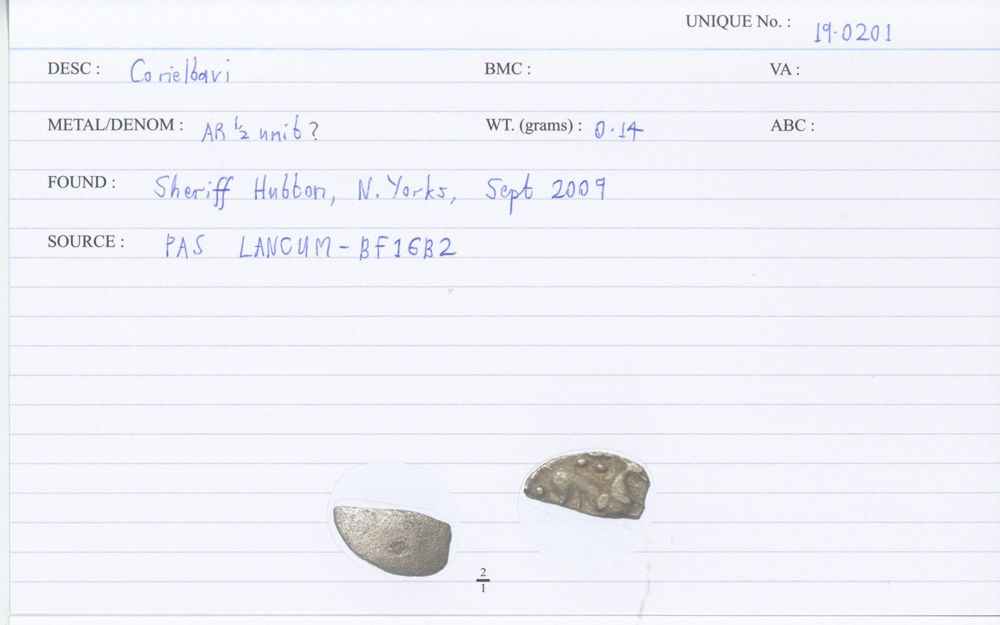 UNIQUE No. : 19.0201
DESC : Corieltavi BMC : VA :
METAL/DENOM : AR ½ unit? WT. (grams) : 0.14 ABC :
FOUND : Sheriff Hutton, N. Yorks, Sept 2009
SOURCE : PAS LANCUM-BF16B2
2
1